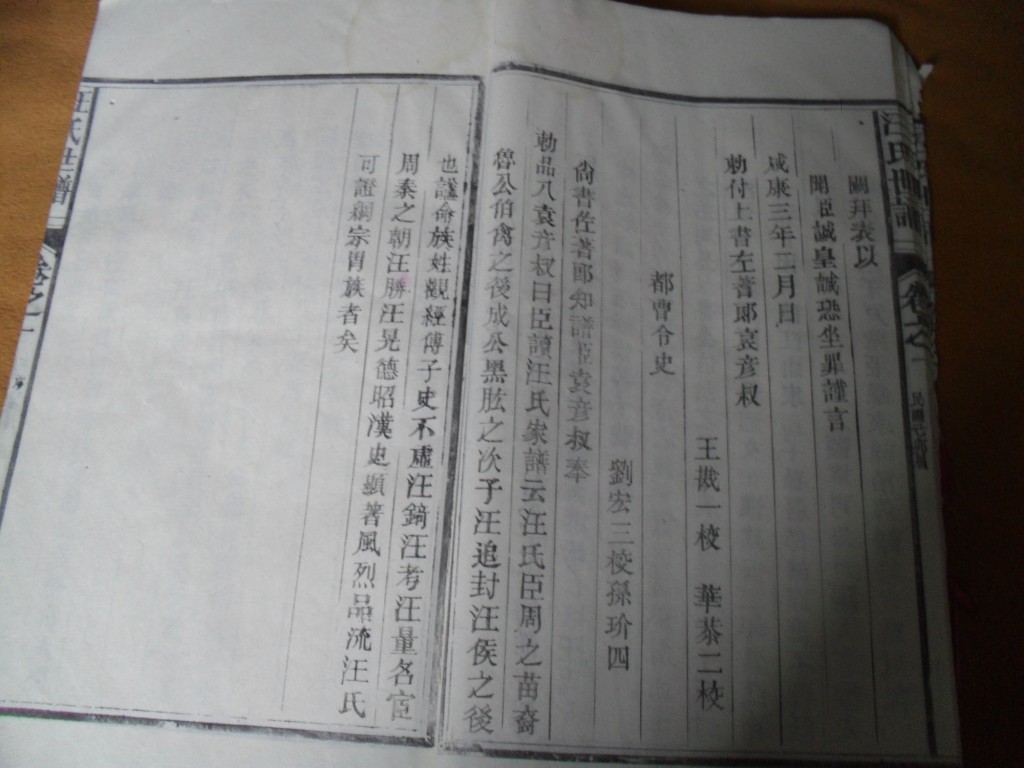 汪氏世譜
卷之一
民國元年
關拜表以
聞臣誠皇誠恐坐罪謹言
咸康三年二月日
勅付上書左著郎袁彦叔
王戭一校　華恭二校
都曹令史
劉宏三校孫玠四
尙書佐著郎知譜臣袁彦叔奉
勅品八袁彦叔曰臣讀汪氏家譜云汪氏臣周之苗裔
魯公伯禽之後成公黑肱之次子汪追封汪侯之後
也謹命族姓觀經傳子史不虛汪錡汪考汪量各宦
周秦之朝汪勝汪晃德昭漢史顯著風烈品流汪氏
可證綱宗冑族者矣
汪氏世譜
卷之一